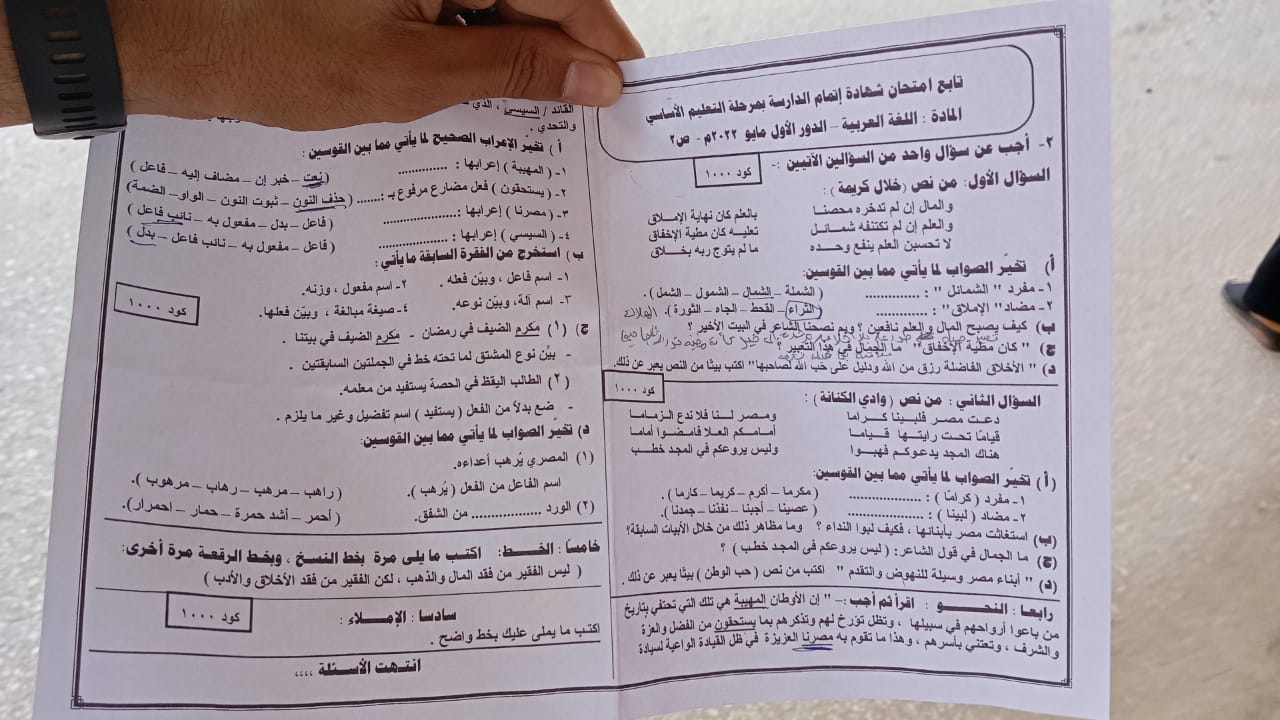 تابع امتحان شهادة إتمام الدارسة بمرحلة التعليم الأساسي
المادة : اللغة العربية – الدور الأول مايو ٢٠٢٢م - ص٢
٢- أجب عن سؤال واحد من السؤالين الآتيين :-
كود ١٠٠٠
السؤال الأول: من نص (خلال كريمة) :
والمال إن لم تدخره محصنا بالعلم كان نهاية الإملاق
والعلم إن لم تكتنفه شمائل تعليه كان مطية الإخفاق
لا تحسبن العلم ينفع وحده ما لم يتوج ربه بخلاق
أ) تخيّر الصواب لما يأتي مما بين القوسين:
١- مفرد " الشمائل " : .............. ( الشملة – الشمال – الشمول – الشمل ) .
٢- مضاد" الإملاق": .............. (الثراء – القحط – الجاه – الثورة ).
ب) كيف يصبح المال والعلم نافعين ؟ وبم نصحنا الشاعر في البيت الأخير ؟
ج) " كان مطية الإخفاق" ما الجمال في هذا التعبير ؟
د) " الأخلاق الفاضلة رزق من الله ودليل على حب الله لصاحبها" اكتب بيتًا من النص يعبر عن ذلك.
كود ١٠٠٠
السؤال الثاني : من نص (وادي الكنانة) :
دعت مصر فلبينا كراما ومصر لنا فلا ندع الزماما
قيامًا تحت رايتها قياما أمامكم العلا فامضوا أماما
هناك المجد يدعوكم فهبوا وليس يروعكم في المجد خطب
(أ) تخيّر الصواب لما يأتي مما بين القوسين:
١- مفرد ( كرامًا ) : .................. ( مكرما – أكرم – كريما – كارما ) .
٢- مضاد ( لبينا ) : .................. ( عصينا – أجبنا – نفذنا – جمدنا ) .
(ب) استغاثت مصر بأبنائها ، فكيف لبوا النداء ؟ وما مظاهر ذلك من خلال الأبيات السابقة؟
(ج) ما الجمال في قول الشاعر: ( ليس يروعكم في المجد خطب ) ؟
(د) " أبناء مصر وسيلة للنهوض والتقدم " اكتب من نص ( حب الوطن ) بيتًا يعبر عن ذلك .
رابعا : النحو : اقرأ ثم أجب :– " إن الأوطان المهيبة هي تلك التي تحتفي بتاريخ
من باعوا أرواحهم في سبيلها ، وتظل تؤرخ لهم وتذكرهم بما يستحقون من الفضل والعزة
والشرف ، وتعتني بأسرهم ، وهذا ما تقوم به مصرنا العزيزة في ظل القيادة الواعية لسيادة
القائد / السيسي ، الذي
والتحدي .
أ ) تخير الإعراب الصحيح لما يأتي مما بين القوسين :
١- ( المهيبة ) إعرابها : ............. ( نعت – خبر إن – مضاف إليه – فاعل )
٢- ( يستحقون ) فعل مضارع مرفوع بـ :....... ( حذف النون – ثبوت النون – الواو- الضمة)
٣- ( مصرنا ) إعرابها :.................. ( فاعل – بدل – مفعول به – نائب فاعل )
٤- ( السيسي ) إعرابها : ................. ( فاعل – مفعول به – نائب فاعل – بدل )
ب ) استخرج من الفقرة السابقة ما يأتي :
١- اسم فاعل ، وبيّن فعله . ٢- اسم مفعول ، وزنه.
٣- اسم آلة، وبيّن نوعه. ٤- صيغة مبالغة ، وبيّن فعلها.
كود ١٠٠٠
ج ) (١) مكرم الضيف في رمضان - مكرم الضيف في بيتنا .
- بيّن نوع المشتق لما تحته خط في الجملتين السابقتين .
(٢) الطالب اليقظ في الحصة يستفيد من معلمه.
- ضع بدلاً من الفعل ( يستفيد ) اسم تفضيل وغير ما يلزم .
د) تخيّر الصواب لما يأتي مما بين القوسين:
(١) المصري يُرهب أعداءه.
اسم الفاعل من الفعل ( يُرهب ). ( راهب – مرهب – رهاب – مرهوب ).
(٢) الورد ................. من الشفق. ( أحمر – أشد حمرة – حمار – احمرار).
خامسًا : الخط: اكتب ما يلي مرة بخط النسخ ، وبخط الرقعة مرة أخرى:
( ليس الفقير من فقد المال والذهب ، لكن الفقير من فقد الأخلاق والأدب )
كود ١٠٠٠
سادسا : الإملاء :
اكتب ما يملى عليك بخط واضح .
انتهت الأسئلة ،،،،